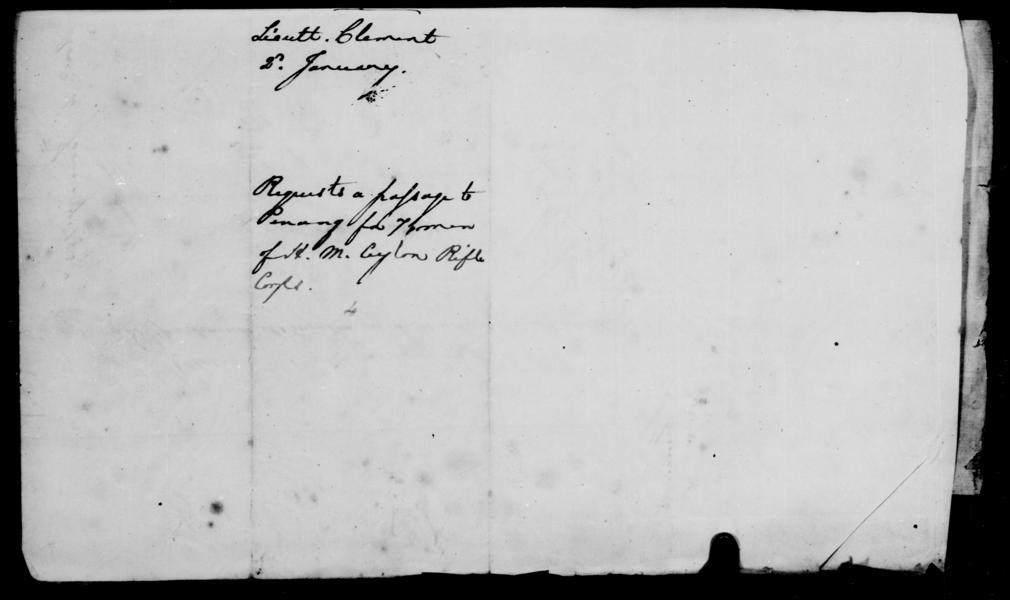 Lieutt. Clement
2d. January.
Requests a passage to
Penang for 7 men
of H. M. Ceylon Rifle
Corps.